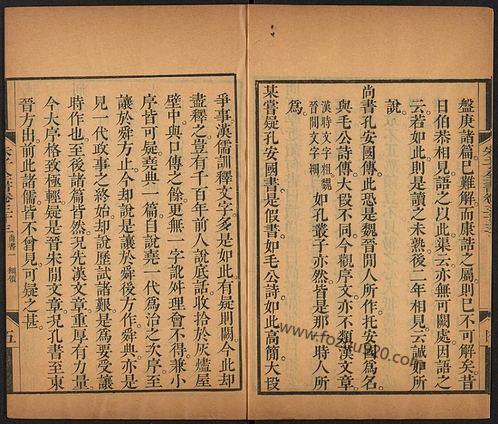 盤庚諸篇已難解而康誥之屬則已不可解矣昔
日伯恭相見語之以此渠云亦無可闕處因語之
云若如此則是讀之未熟後二年相見云誠如所
說
尚書孔安國傳此恐是魏晉間人所作托安國為名
與毛公詩傳大段不同今觀序文亦不類漢文章
漢時文字粗魏晉間文字細
如孔叢子亦然皆是那一時人所
為
某嘗疑孔安國書是假書如毛公詩如此高簡大段
爭事漢儒訓釋文字多是如此有疑則闕今此却
盡釋之豈有千百年前人說底話收拾於灰燼屋
壁中與口傳之餘更無一字訛舛理會不得兼小
序皆可疑堯典一篇自說堯一代為治之次序至
讓於舜方止今却說是讓於舜後方作舜典亦是
見一代政事之終始却說歷試諸艱是為要受讓
時作也至後諸篇皆然況先漢文章重厚有力量
今大序格致極輕疑是晉宋間文章況孔書至東
晉方出前此諸儒皆不曾見可疑之甚
尚書 綱領
五
www.foxfoto2020.com